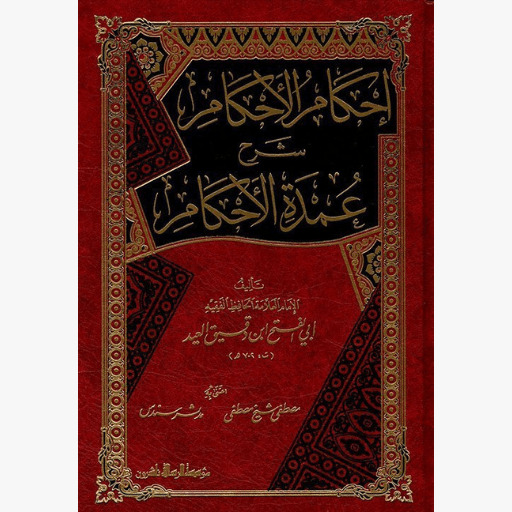 إحكام الأحكام
شرح
عمدة الأحكام
تأليف
الإمام العلامة الحافظ الفقيه
أبي الفتح ابن دقيق العيد
(ت ٧٠٢ هـ)
اعتنى به
مصطفى شيخ مصطفى مدثر سندس
مؤسسة الرسالة ناشرون